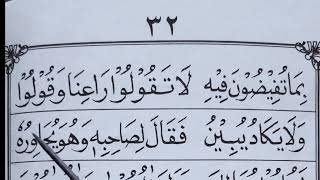 ٣٢
بِمَا تُفِيْضُوْنَ فِيْهِ لَا تَقُوْلُوْا رَاعِنَا وَقُوْلُوا
وَلَا يَكَادُ يُبِيْنُ فَقَالَ لِصَاحِبِهٖ وَهُوَ يُحَاوِرُهٗ